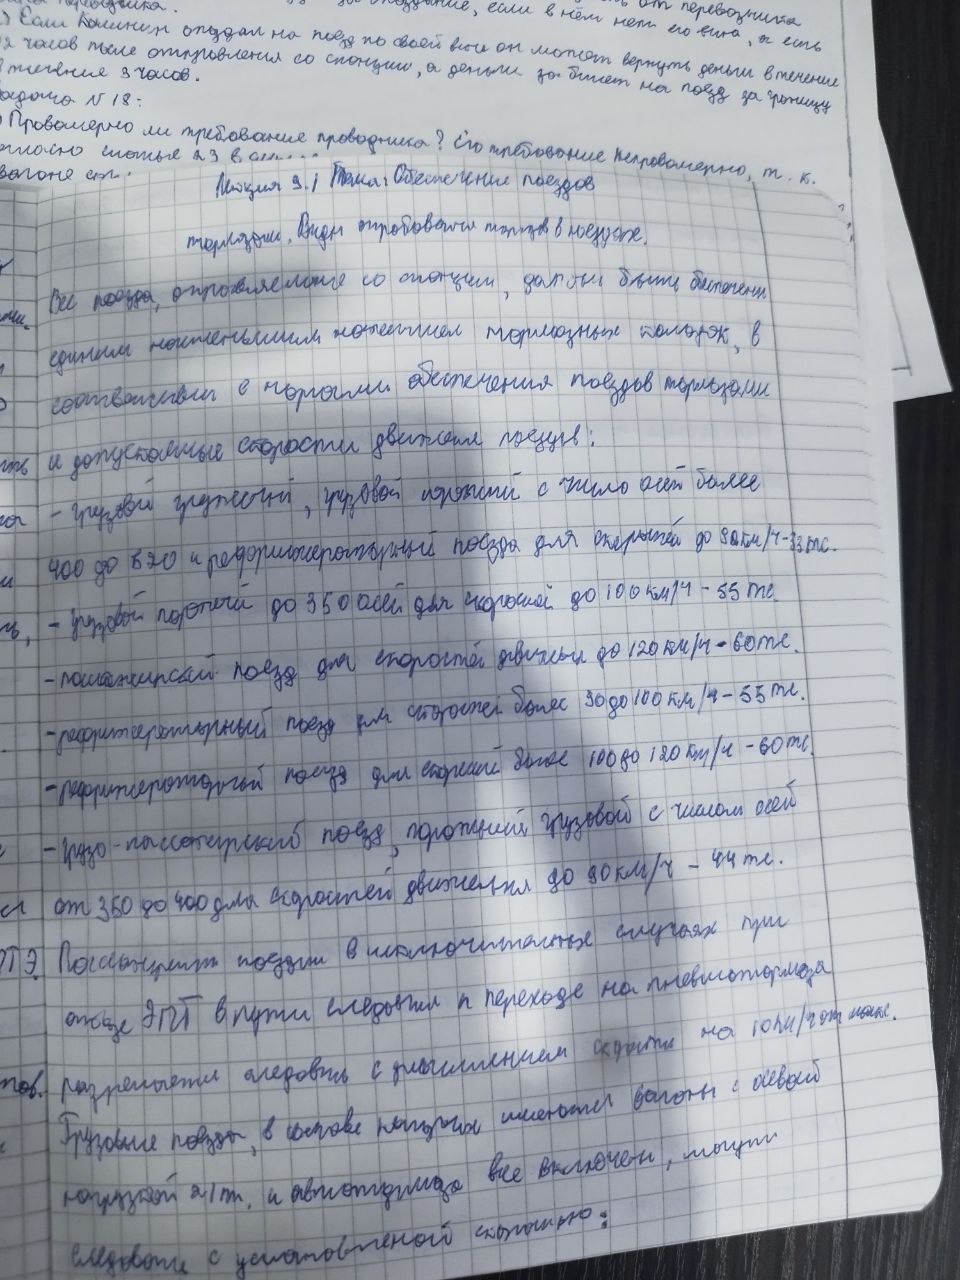 от перевозчика
если в нём нет его вина, то есть
Если Калинин опоздал на поезд по своей вине он может вернуть деньги в течение
часов после отправления со станции, а деньги за билет на поезд за границу
в течение 3 часов.
Задача № 18:
Правомерно ли требование проводника? Его требование неправомерно, т.к.
согласно статье 23
вагоне
Лекция 9.1 Тема: Обеспечение поездов
тормозами. Виды опробования тормозов в поездах.
Все поезда, отправляемые со станции, должны быть обеспечены
единым наименьшим нажатием тормозных колодок, в
соответствии с нормами обеспечения поездов тормозами
и допускаемые скорости движения поездов:
- грузовой гружёный, грузовой порожний с число осей более
400 до 520 и рефрижераторный поезда для скоростей до 90км/ч-33тс.
- грузовой порожний до 350 осей для скоростей до 100км/ч - 55тс
- пассажирский поезд для скоростей движения до 120км/ч - 60тс.
- рефрижераторный поезд для скоростей более 90 до 100 км/ч - 55тс.
- рефрижераторный поезд для скоростей более 100 до 120 км/ч - 60тс.
- грузо-пассажирский поезд, порожний грузовой с числом осей
от 350 до 400 для скоростей движения до 90км/ч - 44тс.
ПТЭ. Пассажирским поездам в исключительных случаях при
отказе ЭПТ в пути следования и переходе на пневмотормоза
разрешается следовать с уменьшением скорости на 10км/ч от макс.
Грузовые поезда, в составе которых имеются вагоны с осевой
нагрузкой 21т. и автотормоза все включены, могут
следовать с установленной скоростью: